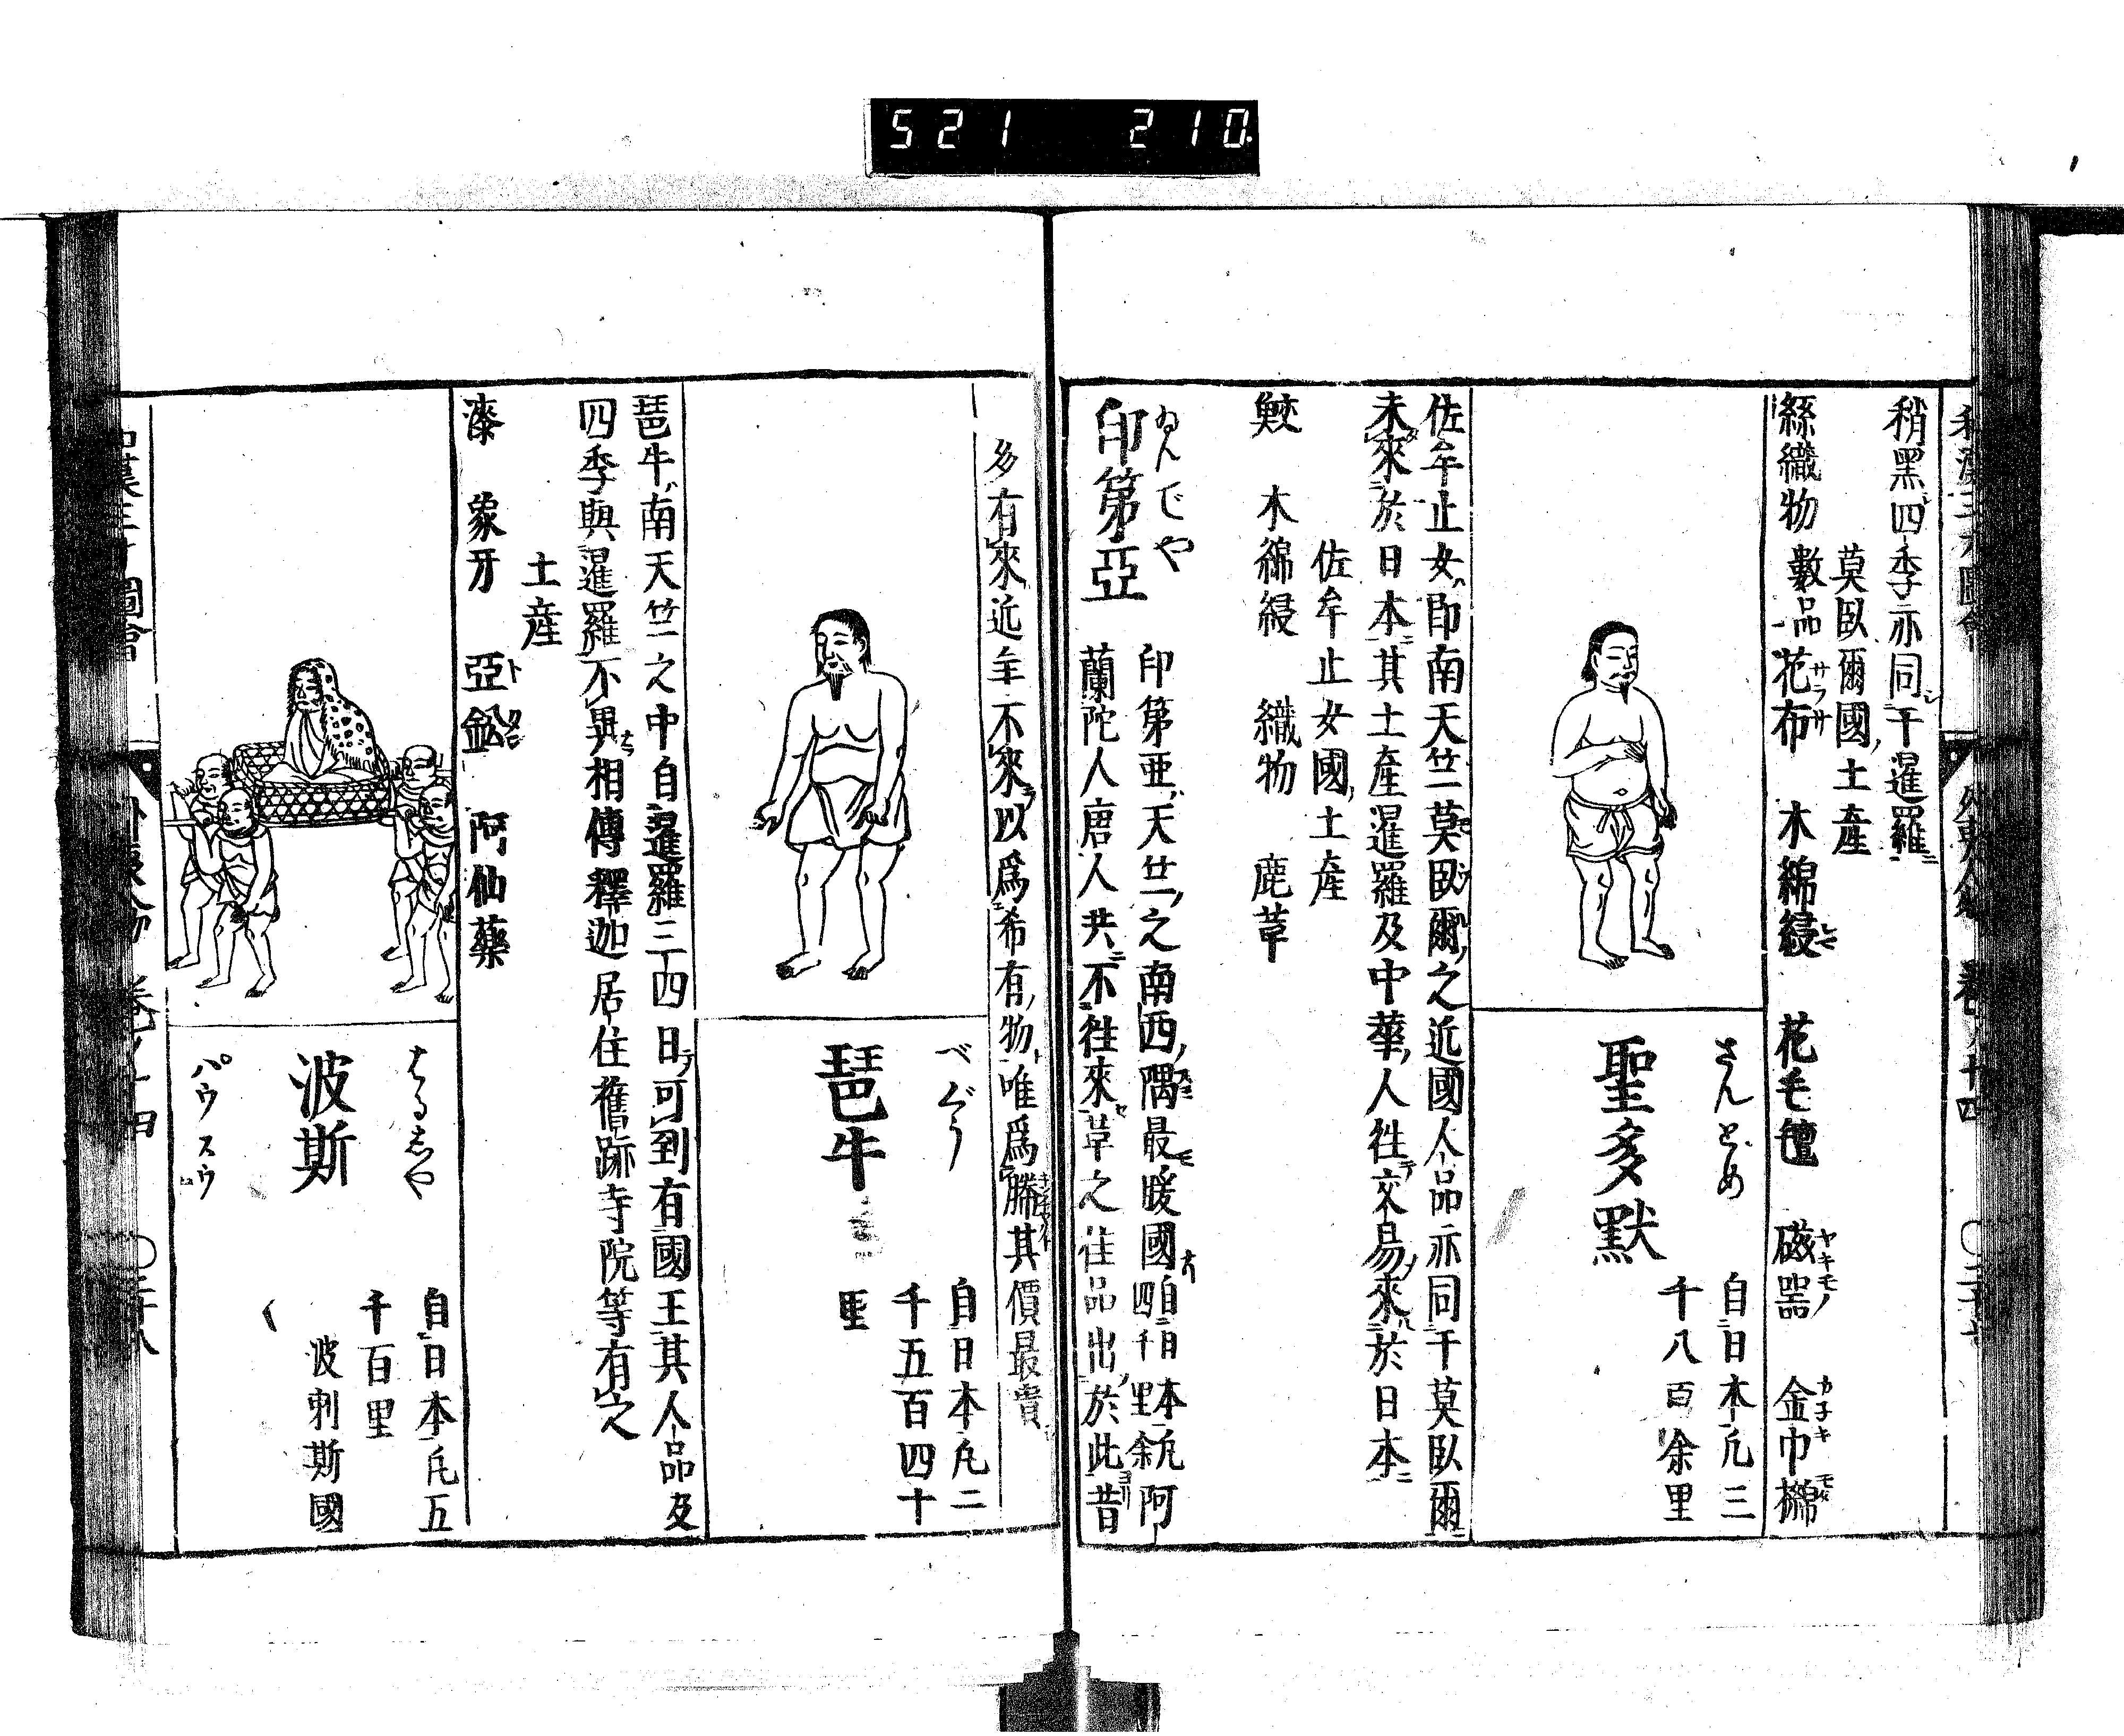 521 210
稍黑四季亦同于暹羅
莫臥爾國土產
絲織物 數品 花布 木綿綅 花毛氊 磁器 金巾櫾
サラサ
ヤキモノ
カ子キ
さんとめ
聖多默
自日本凡三
千八百余里
佐牟止女即南天竺莫臥爾之近國人品亦同于莫臥爾
未來於日本其土產暹羅及中華人徃交易來於日本
佐牟止女國土產
鮫 木綿綅 織物 鹿革
ゐんでや
印第亞
印第亜天竺之南西隅最暖國 自日本凡四千里余 阿
蘭陀人唐人共不徃來革之佳品出於此昔
多有來近年不來以爲希有物唯爲勝其價最貴
べぐう
琶牛
自日本凡二
千五百四十
里
琶牛南天竺之中自暹羅三四日可到有國王其人品及
四季與暹羅不異相傳釋迦居住舊跡寺院等有之
土產
漆 象牙 亞鈆 阿仙藥
はるしや
波斯
パウスウ
自日本凡五
千百里
波剌斯國
和漢三才圖會